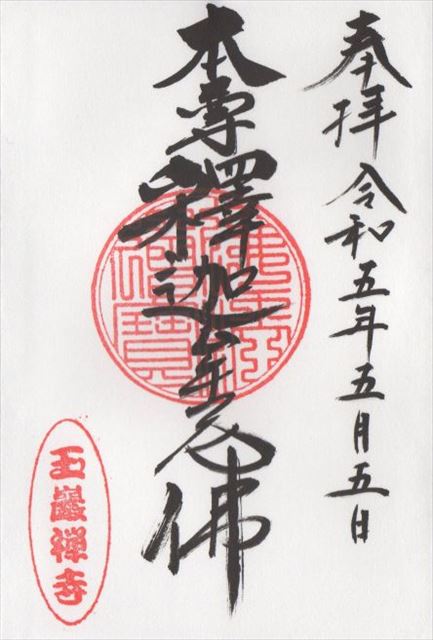 奉拝 令和五年五月五日
本尊釋迦牟尼佛
佛法僧寶
玉巖禅寺